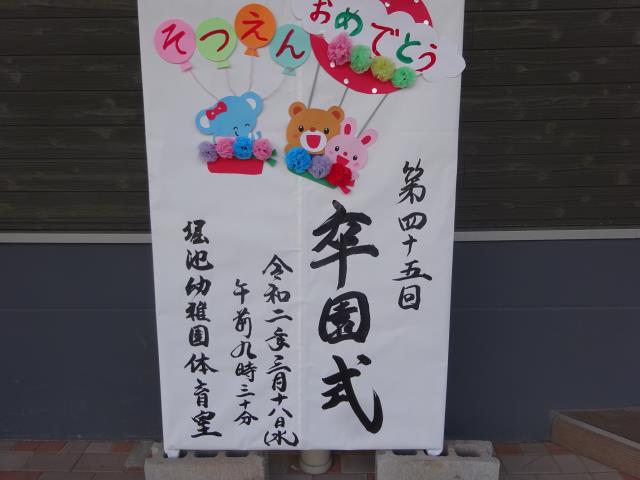 そつえん
おめでとう
第四十五回
卒園式
令和二年三月十八日(水)
午前九時三十分
堀池幼稚園体育室